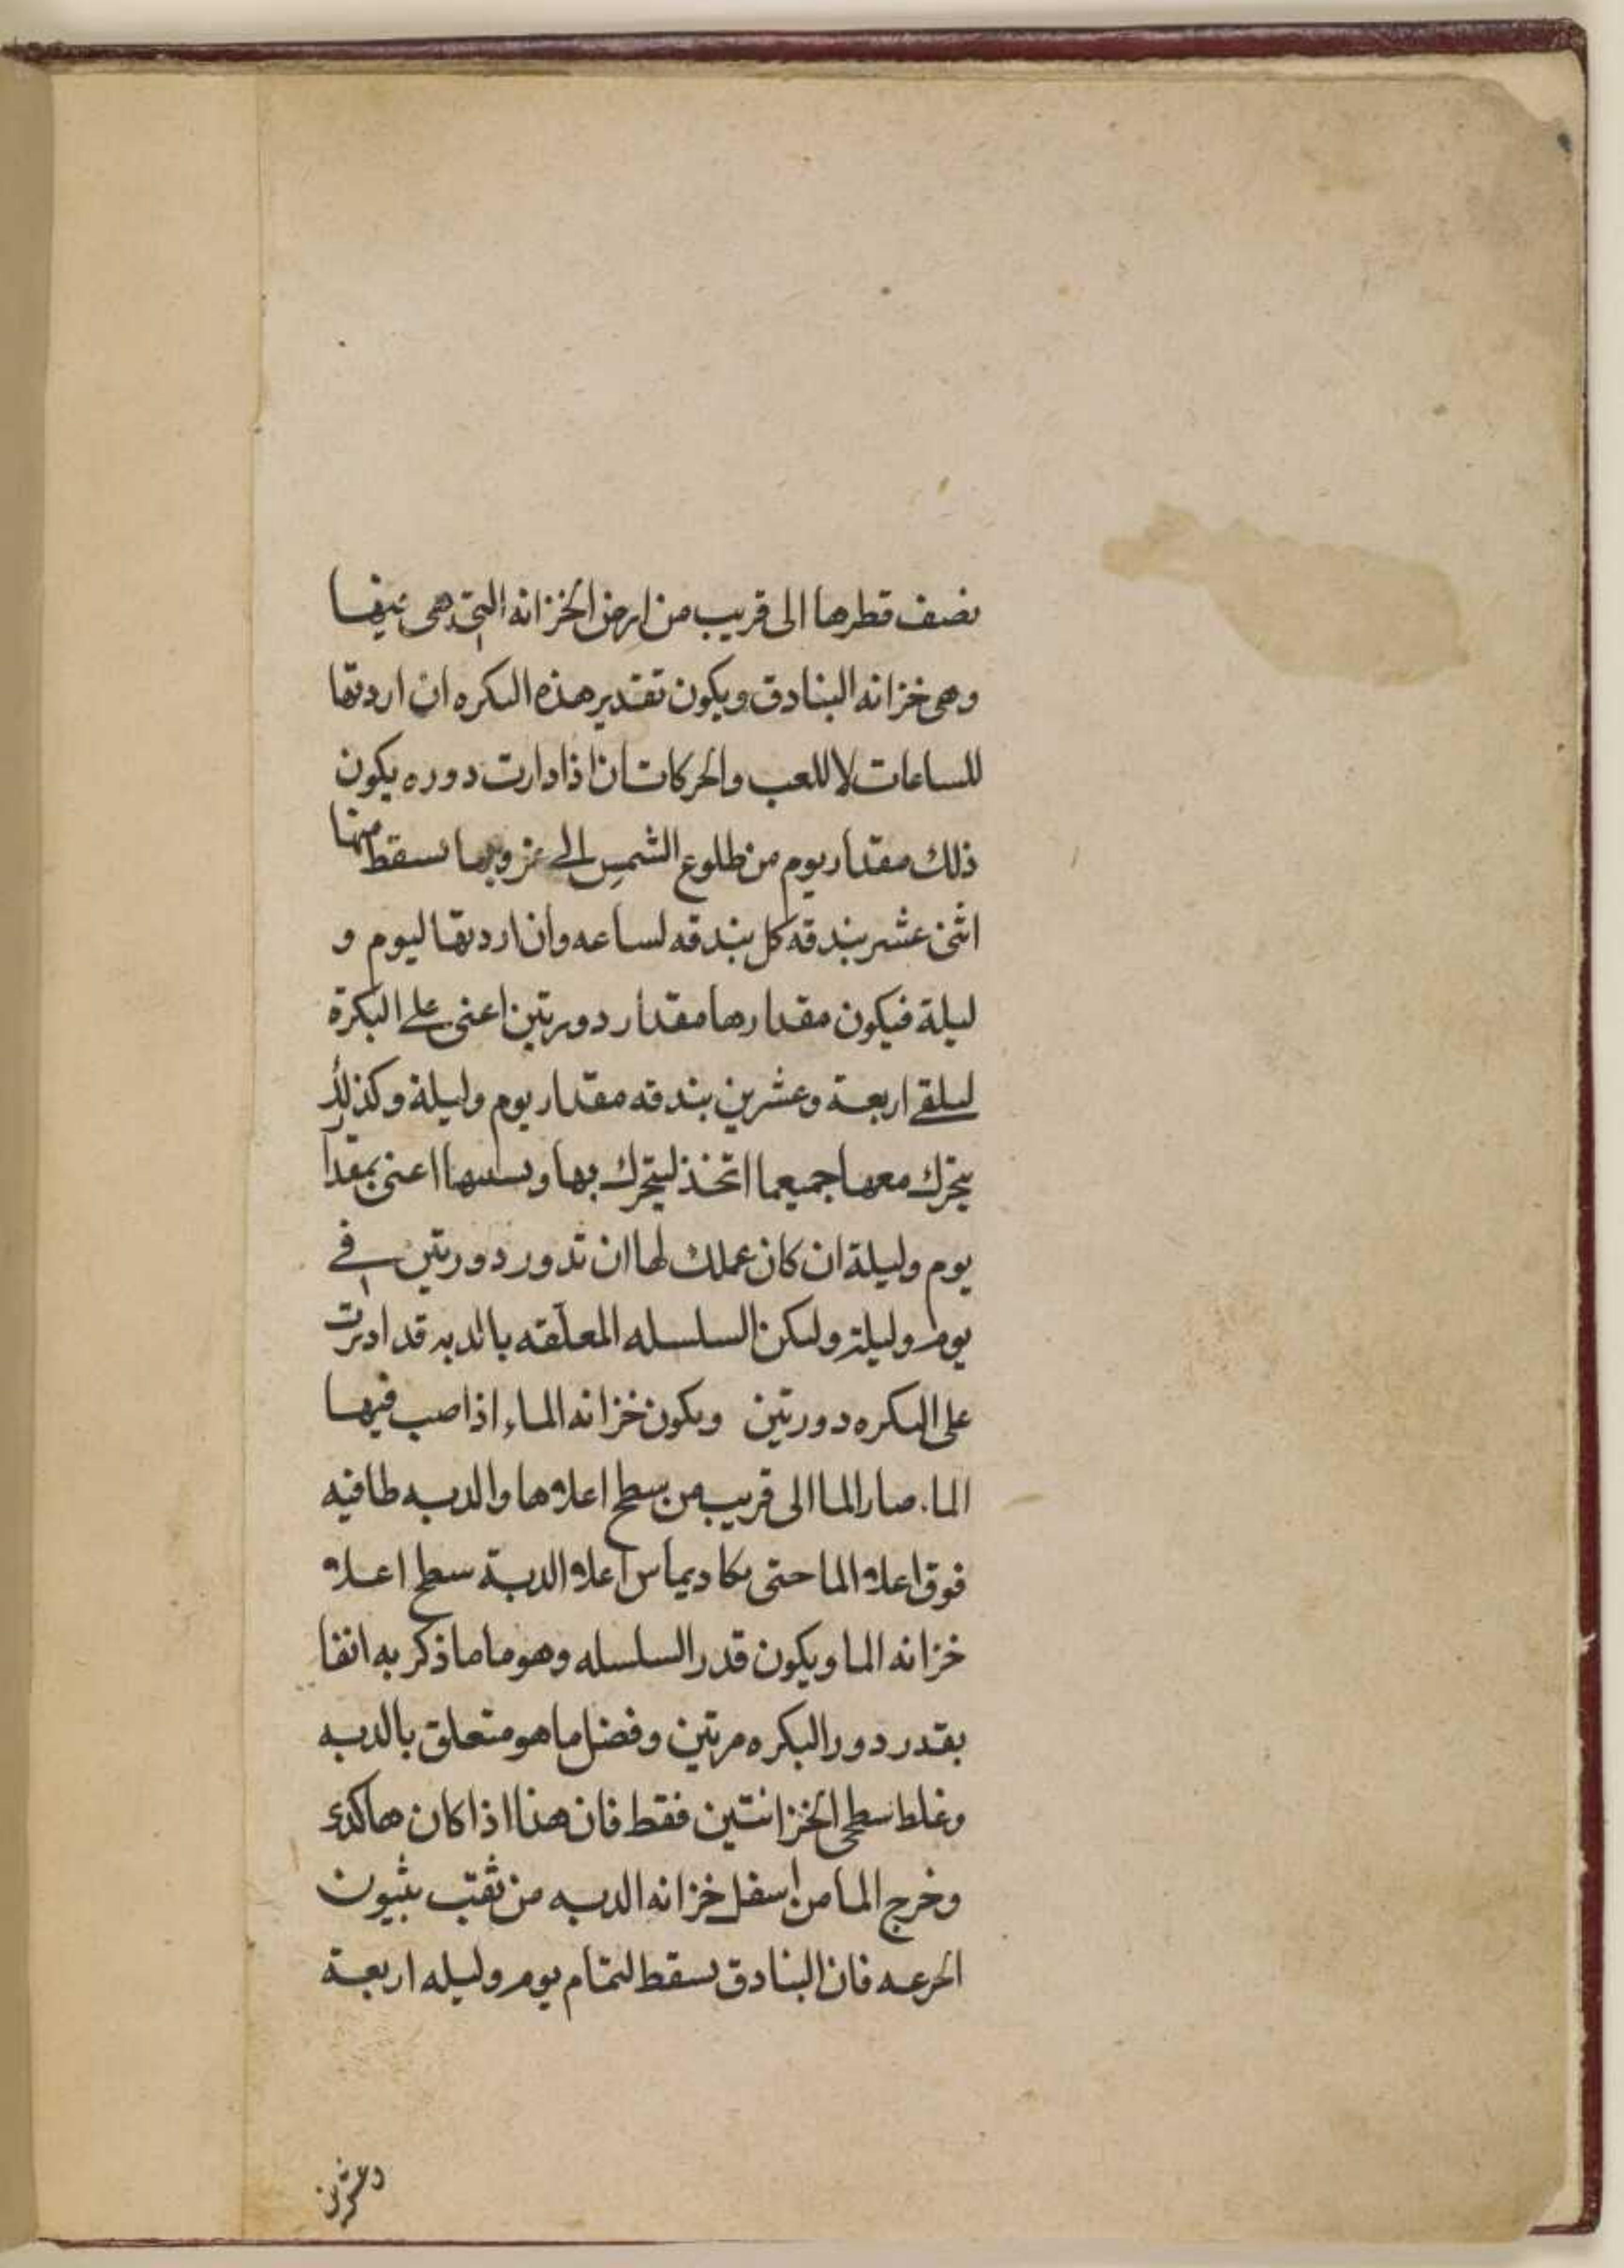 نصف قطرها الى قريب من ارض الخزانه التي هي فيها
وهي خزانه البنادق ويكون تقدير هذه البكره ان اردتها
للساعات لا للعب والحركات ان اذا دارت دوره يكون
ذلك مقدار يوم من طلوع الشمس الى غروبها يسقط منها
اثنى عشر بندقه كل بندقه لساعه وان اردتها ليوم و
ليلة فيكون مقدارها مقدار دورتين اعنى على البكرة
ليلقى اربعة وعشرين بندقه مقدار يوم وليلة وكذلك
يتحرك معها جميعما اتخذ ليتحرك بها وبسببها اعنى بمقدا
يوم وليلة ان كان عملك لها ان تدور دورتين في
يوم وليلة ولكن السلسله المعلقه بالدبه قد اديرت
على البكره دورتين ويكون خزانه الماء اذا صب فيها
الما صار الما الى قريب من سطح اعلاها والدبه طافيه
فوق اعلا الما حتى يكاد يماس اعلا الدبة سطح اعلا
خزانه الما ويكون قدر السلسله وهو ما ما ذكر به انفا
بقدر دور البكره مرتين وفضل ما هو متعلق بالدبه
وغلط سطحى الخزانتين فقط فان هذا اذا كان هاكذى
وخرج الما من اسفل خزانه الدبه من ثقب بثيون
الجرعه فان البنادق يسقط لتمام يوم وليله اربعة
وعشرين